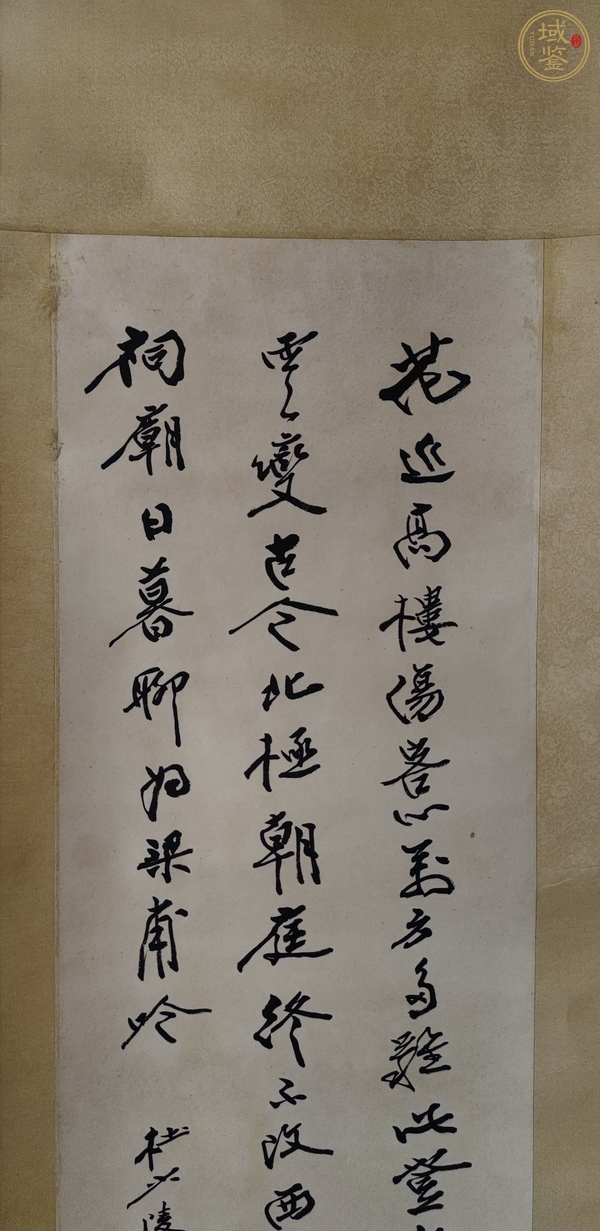 域鉴
花近高樓傷客心萬方多難此登
雲變古今北極朝庭終不改西
祠廟日暮聊為梁甫吟 杜少陵